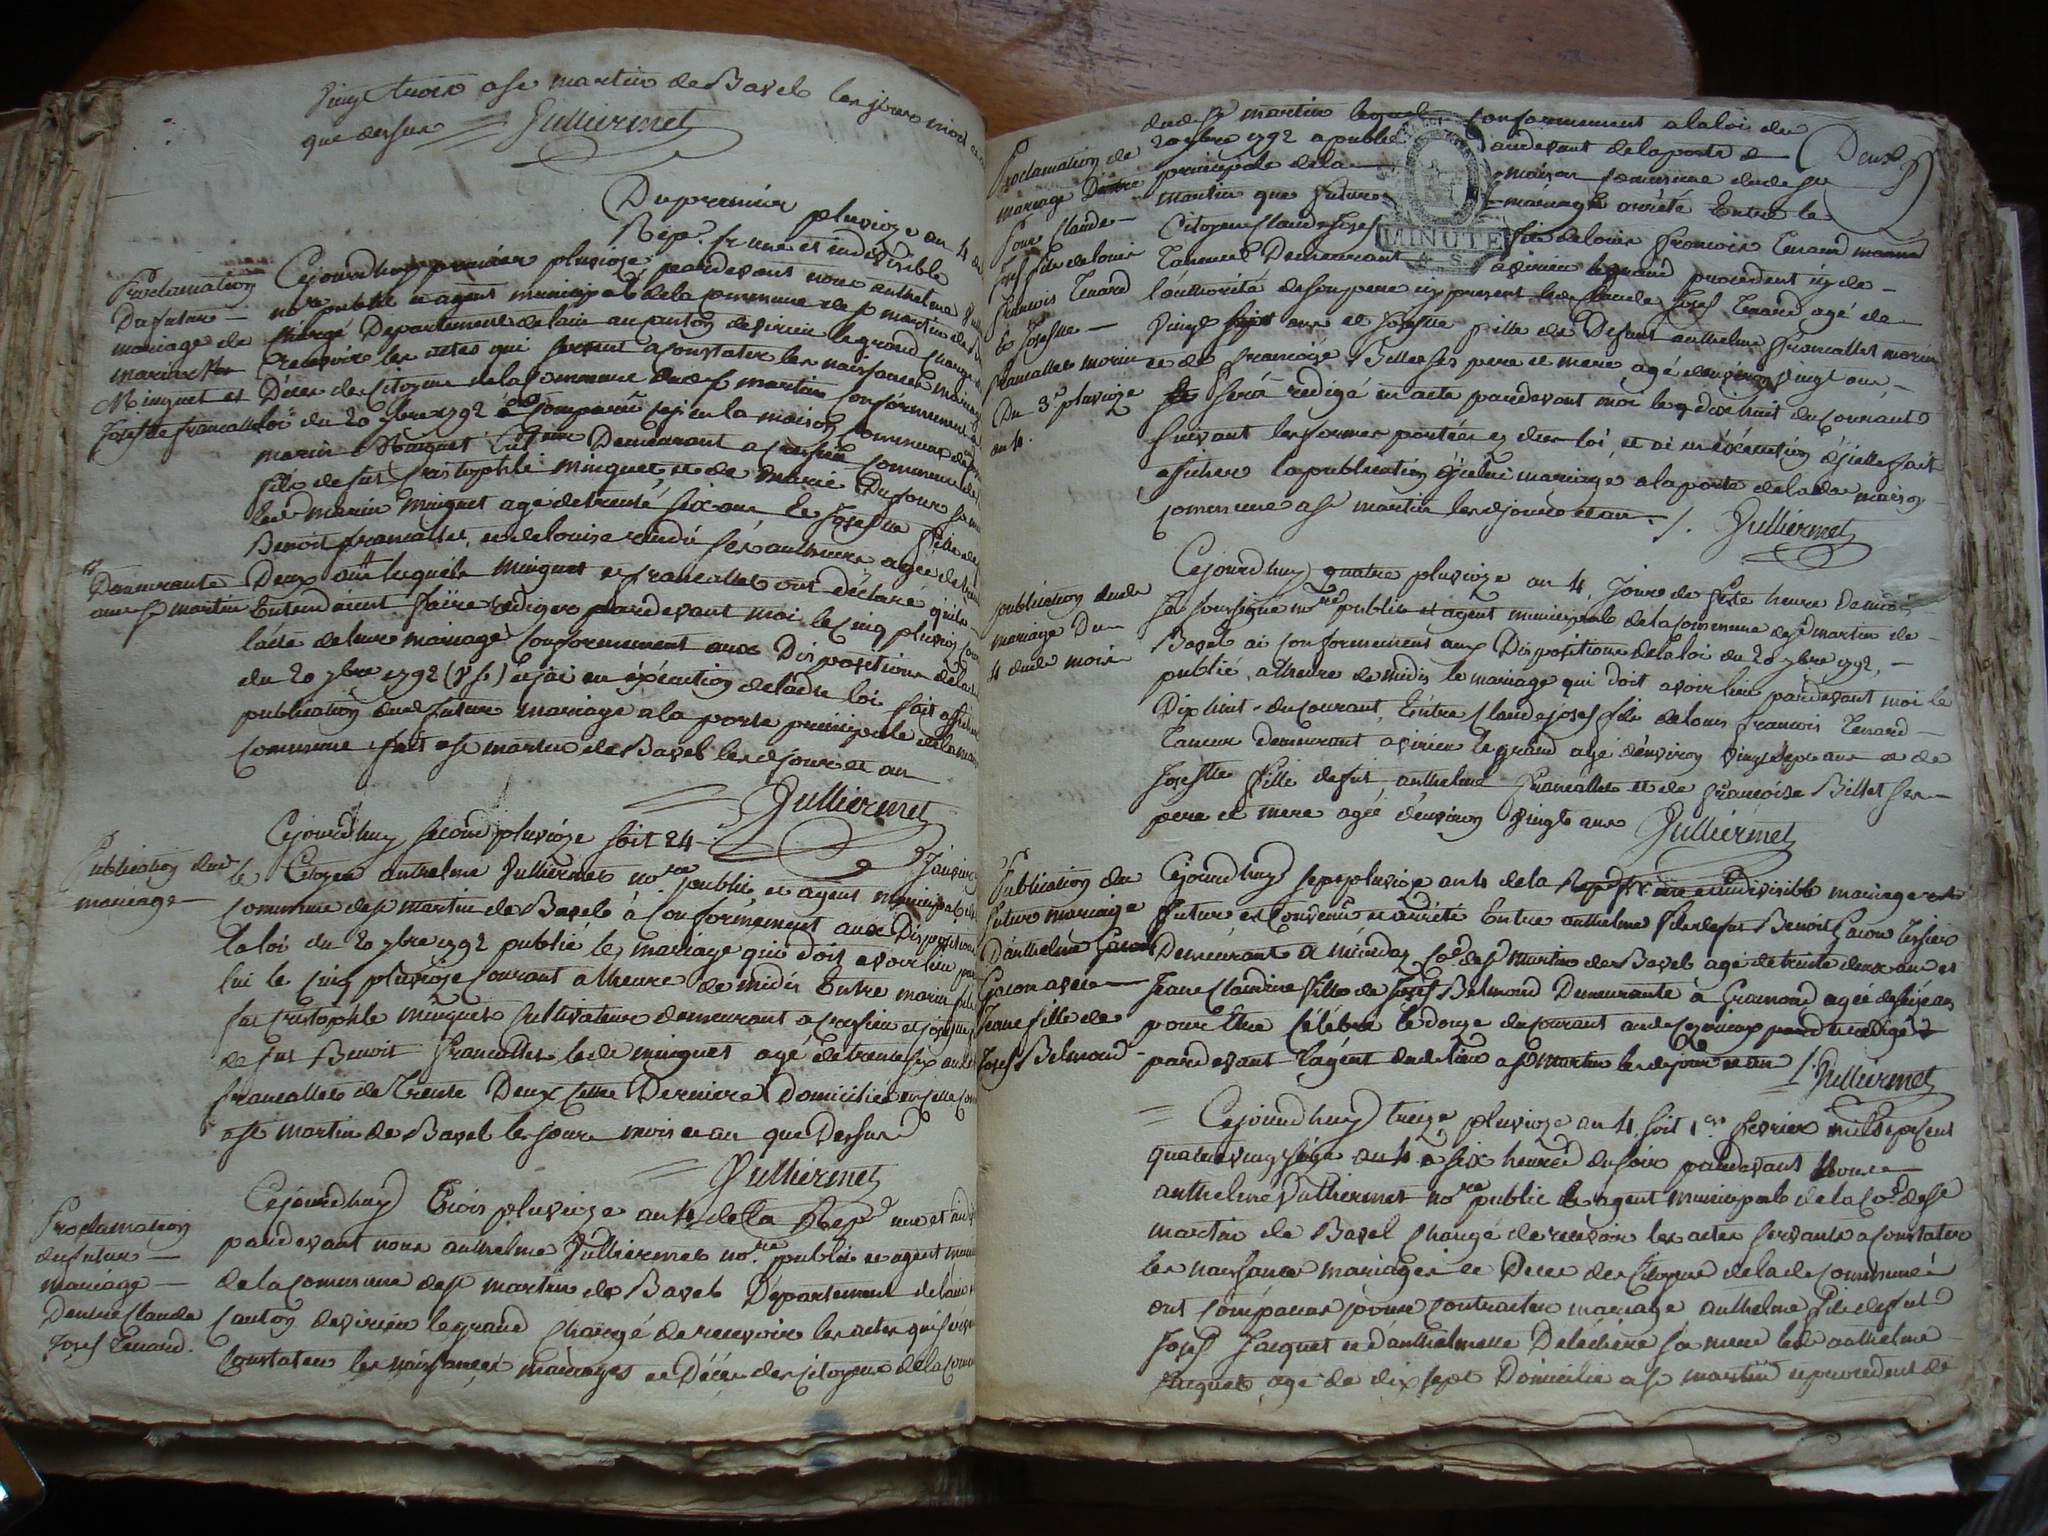 vingt trois a st martin de Bavel les jour mois
que dessus Julliermet
Du premier pluviose an 4 de
Rép. fr une et indivisible
Proclamation
Du futur
mariage de
marin
Minguet et
Josephte francallet
Cejourdhuy premier pluviose pardevant nous anthelme
nore public et agent municipal de la commune de st martin de
chargé Departement de lain au canton de virieu le grand
recevoir les actes qui servent a constater les naissances mariages
Décès des Citoyens de la commune dud st martin conformément a
loi du 20 7bre 1792 a comparu en la maison commune
marin Minguet Demeurant a cressieu commune de
fils de fut Cristophle minguet et de marie Dufour
led marin minguet agé de trente six ans et Josephte fille de
Benoit francallet et de louise agée de trente
Demeurante
aud st martin
Deux ans lequels minguet et francallet ont déclaré qu'ils
Entendoient faire rediger pardevant moi le cinq pluviose
lacte de leur mariage conformement aux Dispositions de la loi
du 20 7bre 1792 (v. s.) et jai en éxécution de ladte loi fait afficher
publication dud futur mariage a la porte principale de la maison
commune fait a st martin de Bavel lesd jour et an
Julliermet
Publication dud
mariage
Cejourdhuy second pluviose soit 24 Janvier
le Citoyen anthelme Julliermet nore public et agent municipal
commune de st martin de Bavel à conformement aux Dispositions
la loi du 20 7bre 1792 publié le mariage qui doit avoir lieu
lui le cinq pluviose courant a lheure de midis Entre marin fils
fut Cristophle minguet Cultivateur demeurant a cressieu et Josephte
de fut Benoit francallet led minguet agé de trente six ans
francallet de trente Deux cette Derniere Domiciliée
a st martin de Bavel les jour mois et an que Dessus
Julliermet
Proclamation
du futur
mariage
Dentre Claude
Josef Tenard.
Cejourdhuy Trois pluviose an 4 de la Rep une et
pardevant nous anthelme Julliermet nore public et agent
de la commune de st martin de Bavel Département de lain
canton de virieu le grand chargé de recevoir les actes qui
Constater les naissances mariages et Décès des Citoyens de la
Proclamation de
mariage Dentre
Claude
Josef fils de louis
francois Tenard
et Josephte
francallet morin
Du 3e pluviose
an 4.
dud st martin lequel conformement a la loi du
20 7bre 1792 a publié audevant de la porte
principale de la maison commune dud st
martin que futur mariage arrété Entre le
Citoyen Claude Josef fils de louis francois Tenard
Taneur Demeurant a virieu le grand procedent
l'authorité de son pere present led Claude Josef Tenard agé de
vingt sept ans et Josephte fille de Defunt anthelme francallet morin
et de francoise Billet ses pere et mere agé denviron vingt ans
sera redigé un acte pardevant moi le dix huit du courant
suivant les formes portées lad loi, et ai en éxécution d'icelle fait
afficher la publication dud mariage a la porte de lade maison
commune a st martin lesd jour et an. Julliermet
Deux
MINUTE
4. S.
publication dude
mariage Du
4 dude mois
Cejourdhuy quatre pluviose an 4, Jour de feste heure De midi
Je soussigné nre public et agent municipal de la commune de st martin de
Bavel ai conformement aux Dispositions de la loi du 20 7bre 1792,
publié, a lheure de midis le mariage qui doit avoir lieu pardevant moi le
Dix huit du courant, Entre Claude Josef fils de louis francois Tenard
Taneur demeurant a virieu le grand agé d'environ vingt sept ans et de
Josephte fille de fut anthelme francallet et de francoise Billet ses
pere et mere agée d'environ vingt ans Julliermet
Publication du
futur mariage
D'anthelme
Gacon avec
Jeane fille de
Josef Belmond
Cejourdhuy sept pluviose an 4 de la Rep fr une et indivisible mariage
futur est Convenu et arrété Entre anthelme fils de fut Benoit Gacon Tessier
Demeurant a coe de st martin de Bavel agé de trente deux ans et
Jeane Claudine fille de Josef Belmond Demeurante à Cramond agée de
pour Etre célébré le douze du courant
pardevant l'agent dud lieu a st martin lesd jour et an Julliermet
Cejourdhuy treize pluviose an 4 soit 1er fevrier mil sept cent
quatre vingt seize à six heures du soir pardevant Nous
anthelme Julliermet nore public et agent municipal de la coe de st
martin de Bavel chargé de recevoir les actes servants a constater
les naissances mariages et Décès des Citoyens de lade commune
ont comparus pour contracter mariage anthelme fils de fut
Josef Jacquet et d'anthelmette sa mere led anthelme
Jacquet agé de dix sept Domicilié a st martin procedent de